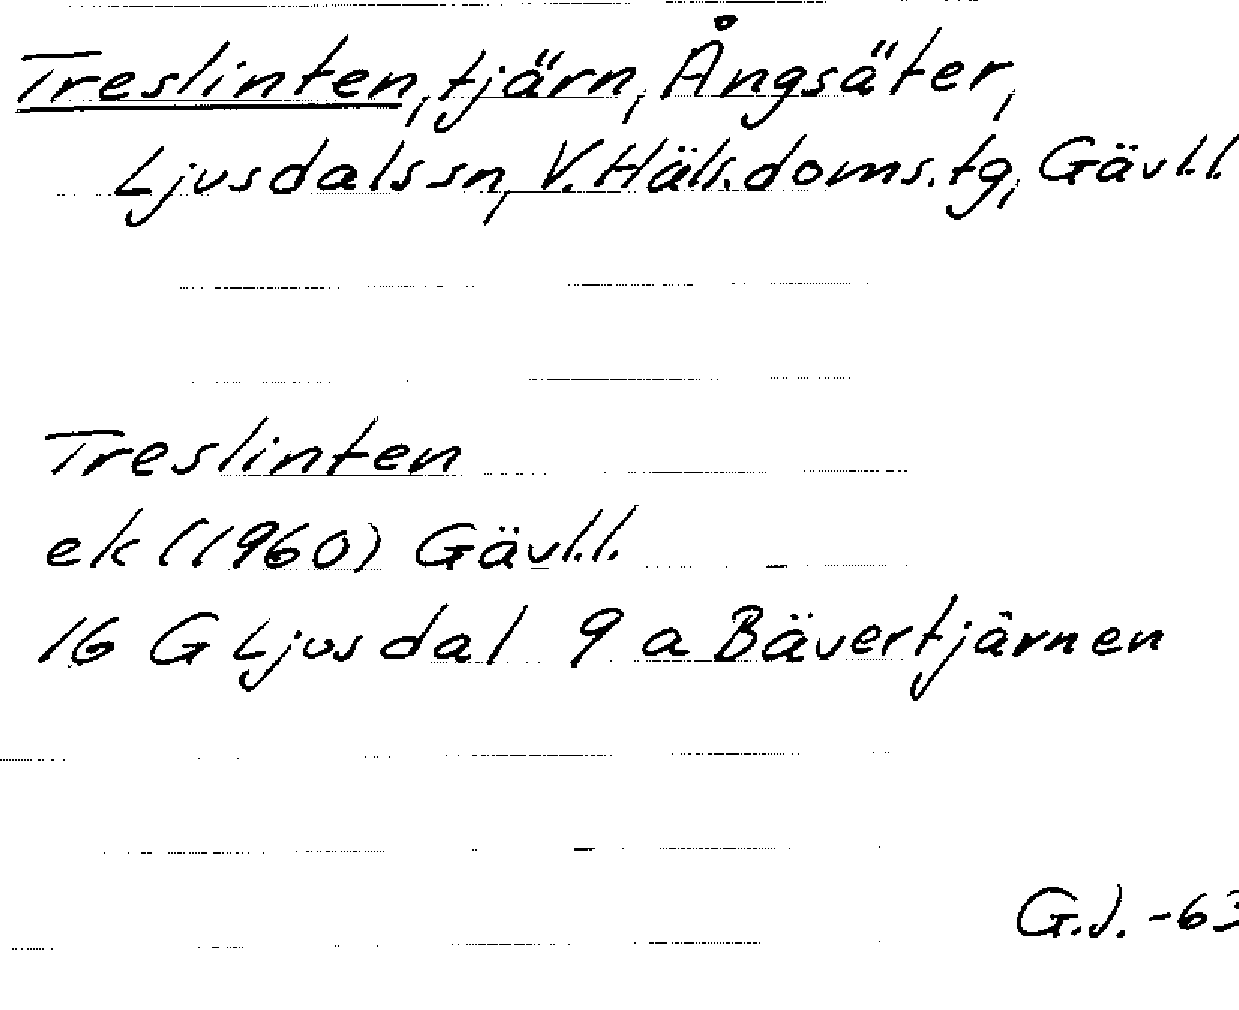 Treslinten, tjärn, Ångsäter,
Ljusdals sn, V. Häls. doms. tg, Gävl.l.
Treslinten
ek (1960) Gävl.l.
16 G Ljusdal 9 a Bävertjärnen
G.J. -63